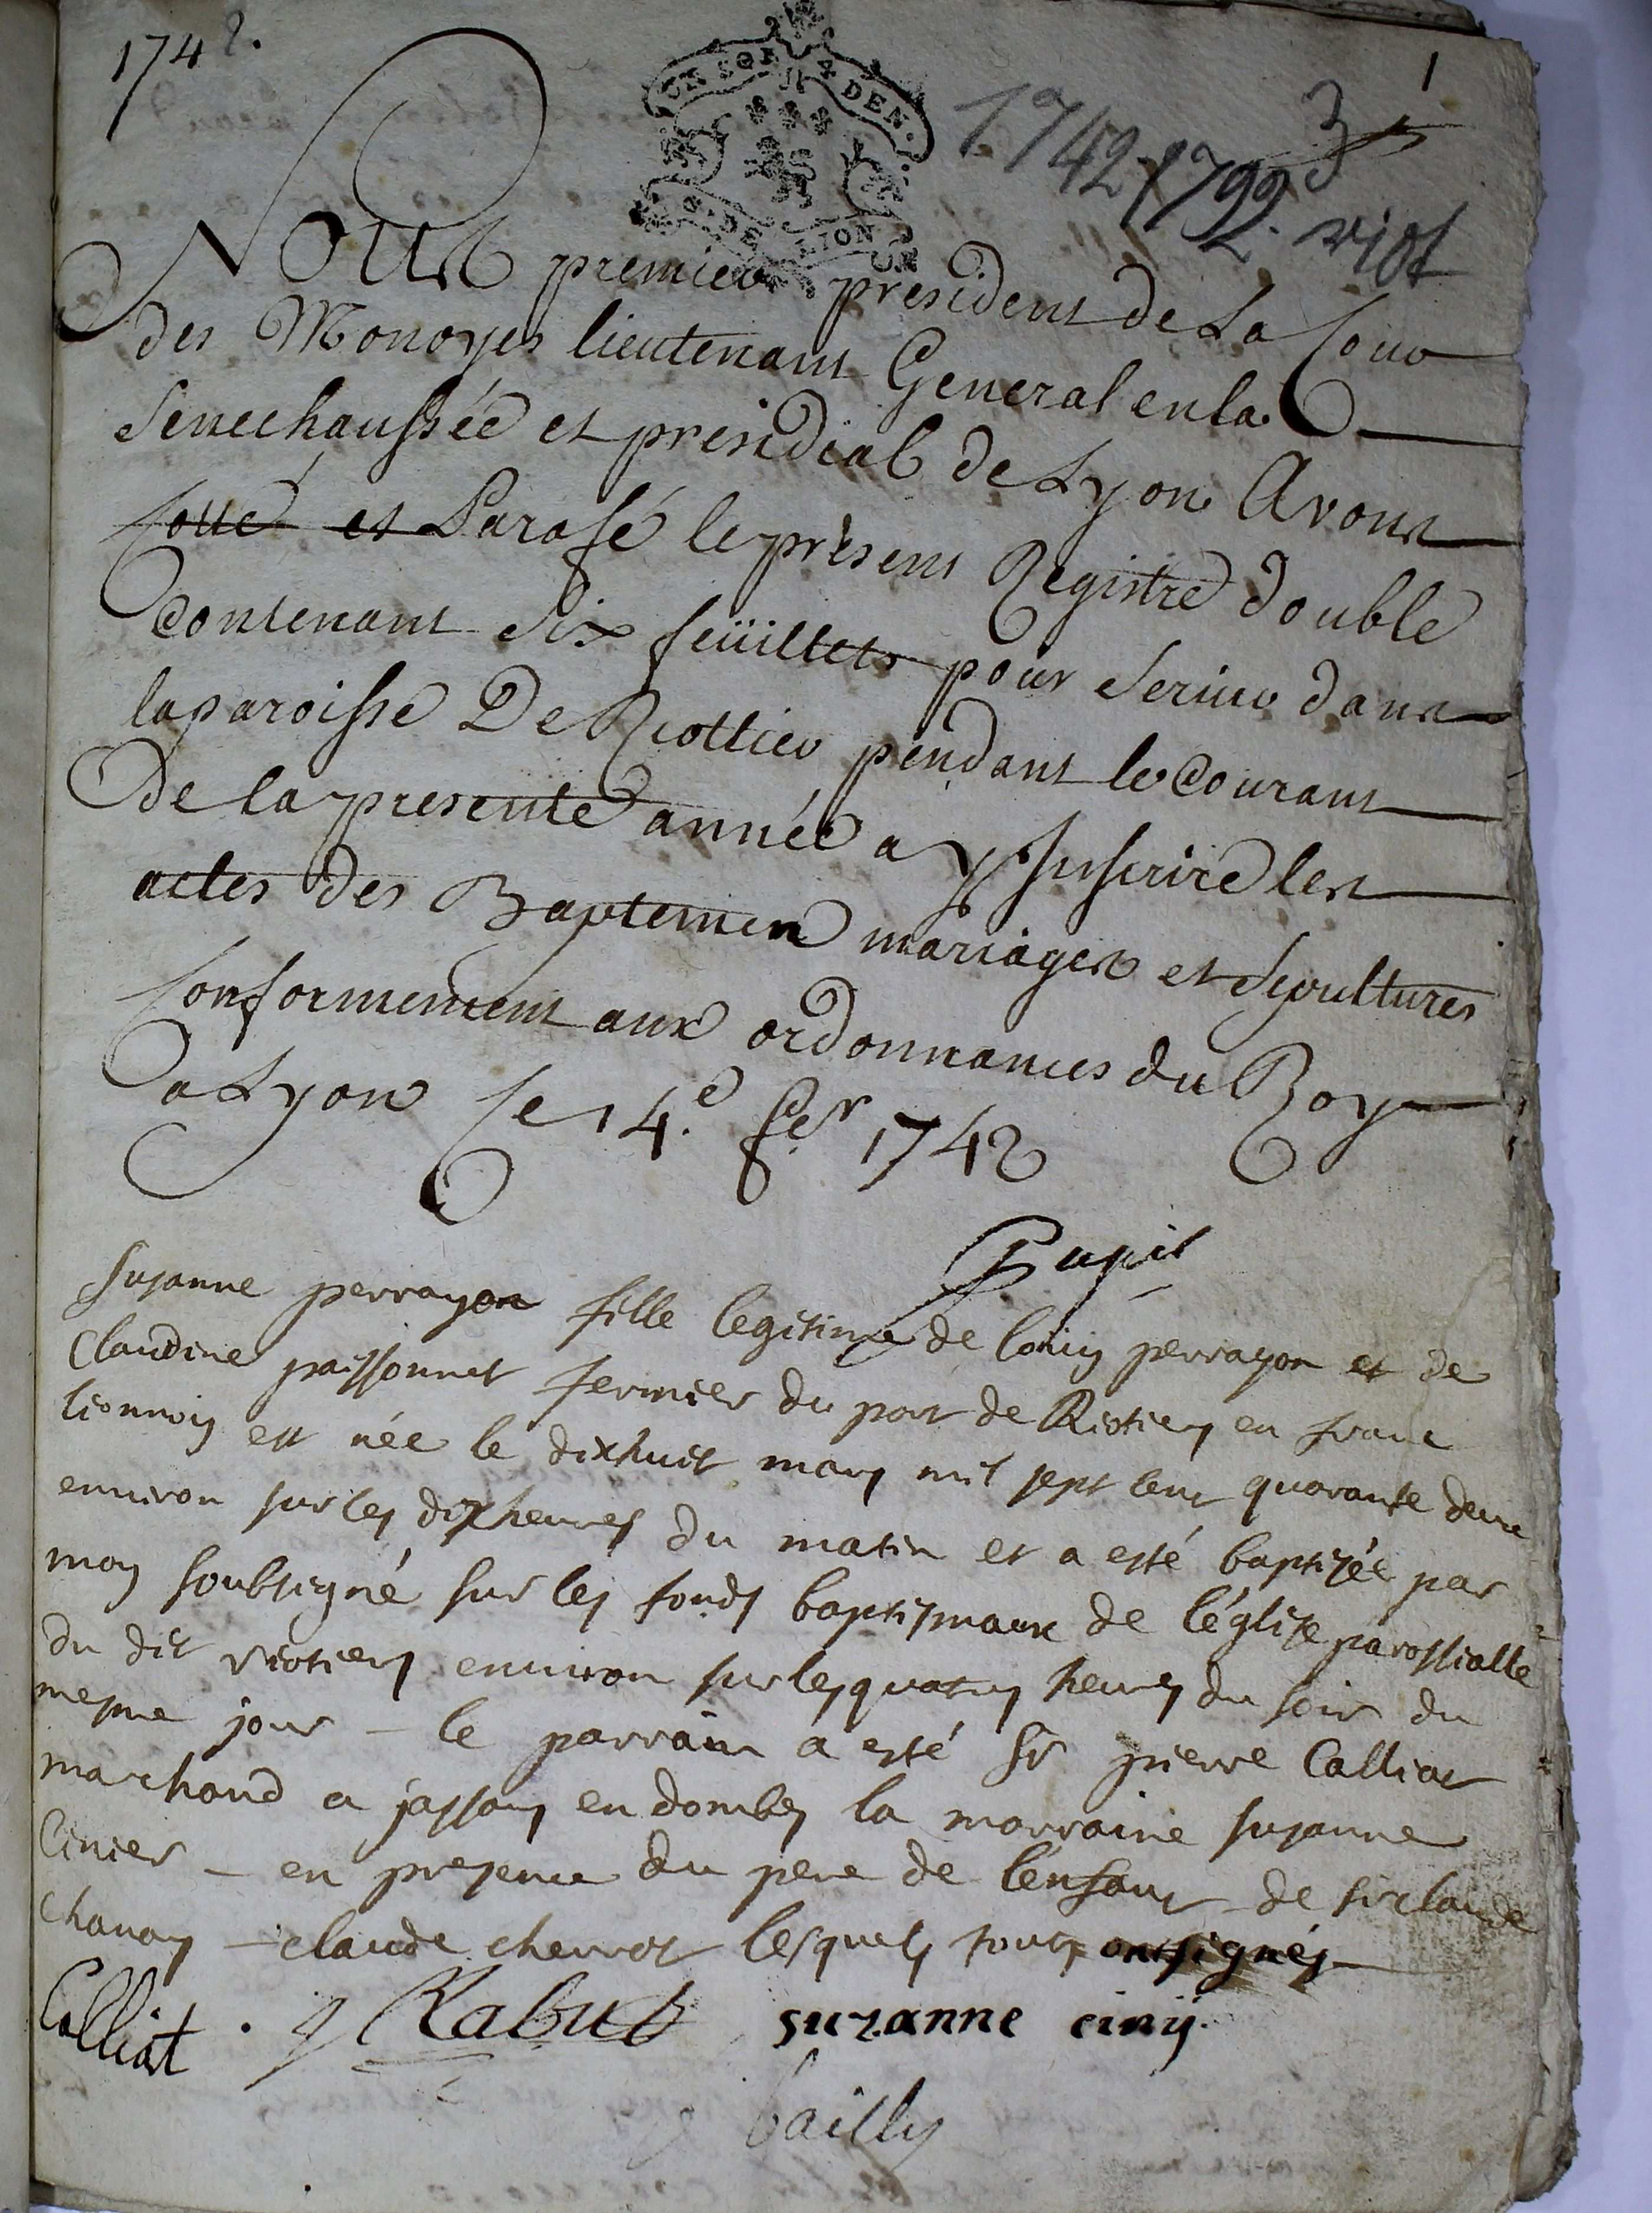 1742.
1
UN SOL 4 DEN.
G. DE LION
3
1742-1792.
Nous premier president de La Cour
des Monoyes lieutenant General en la
Senechaussée et presidial de Lyon Avons
Cotté et Parafé le present Registre double
Contenant Six feüillets pour Servir dans
la paroisse De Riottier pendant le Courant
De la presente année a y Inscrire les
actes des Baptemes mariages et Sepultures
Conformement aux ordonnances du Roy
a Lyon le 14.e fer 1742
Pupil
Susanne perrayon fille legitime de Louis perrayon et de
Claudine paissonnet fermier du port de Riotiers en franc
lionnois est née le dixhuit mars mil sept cent quarante deux
environ sur les dix heures du matin et a esté baptisée par
moy soubsigné sur les fonds baptismaux de l'église parossialle
du dit riotiers environ sur les quatres heures du soir du
mesme jour - le parrain a esté Sr pierre Calliat
marchand a jassans en dombes la marraine susanne
Cinier - en presence du pere de l'enfant de sr claude
Chanay - claude cherrot lesquels tous ont signés
Calliat . Rabut suzanne cinij.
bailly